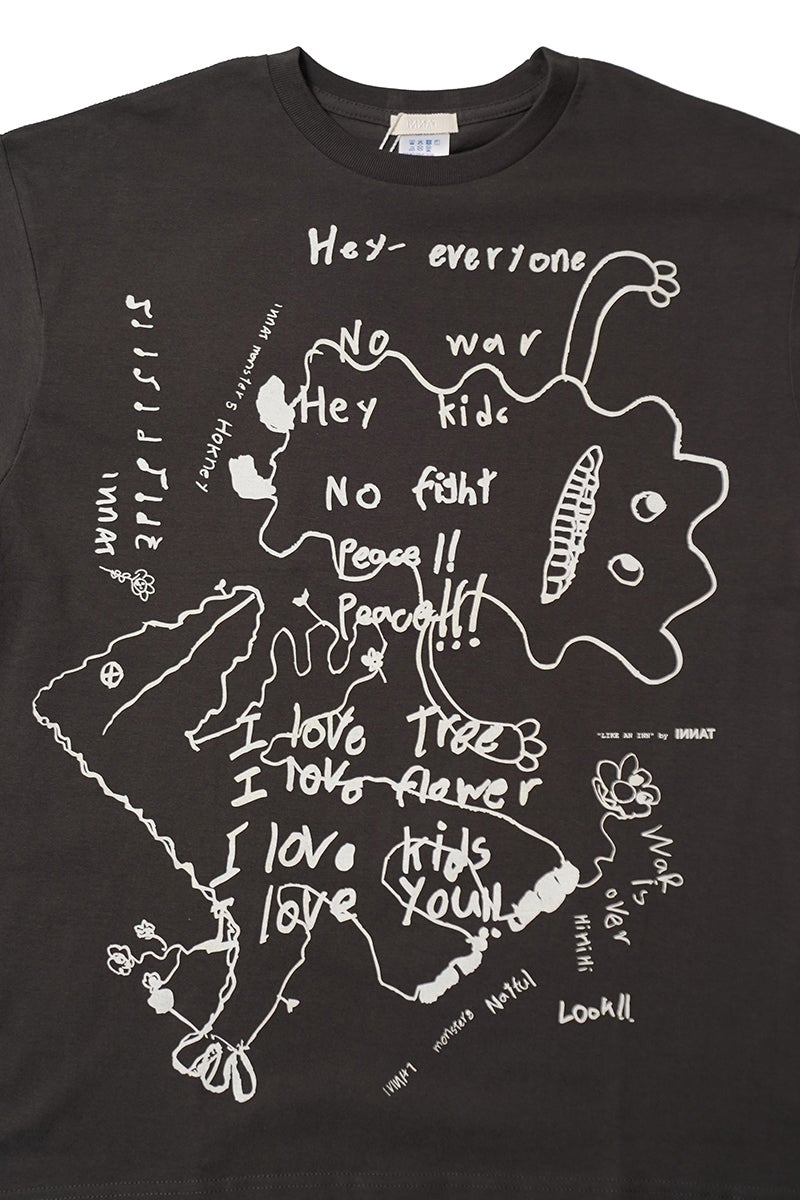 INNAT
Hey- everyone
No war
Hey kids
No fight
Peace!!
Peace!!!
I love Tree
I love flower
I love kids
I love you!!
INNAT monsters Hokney
INNAT
"LIKE AN INN" by INNAT
War is over
HiHiHi
Look!!
INNAT monsters Natful